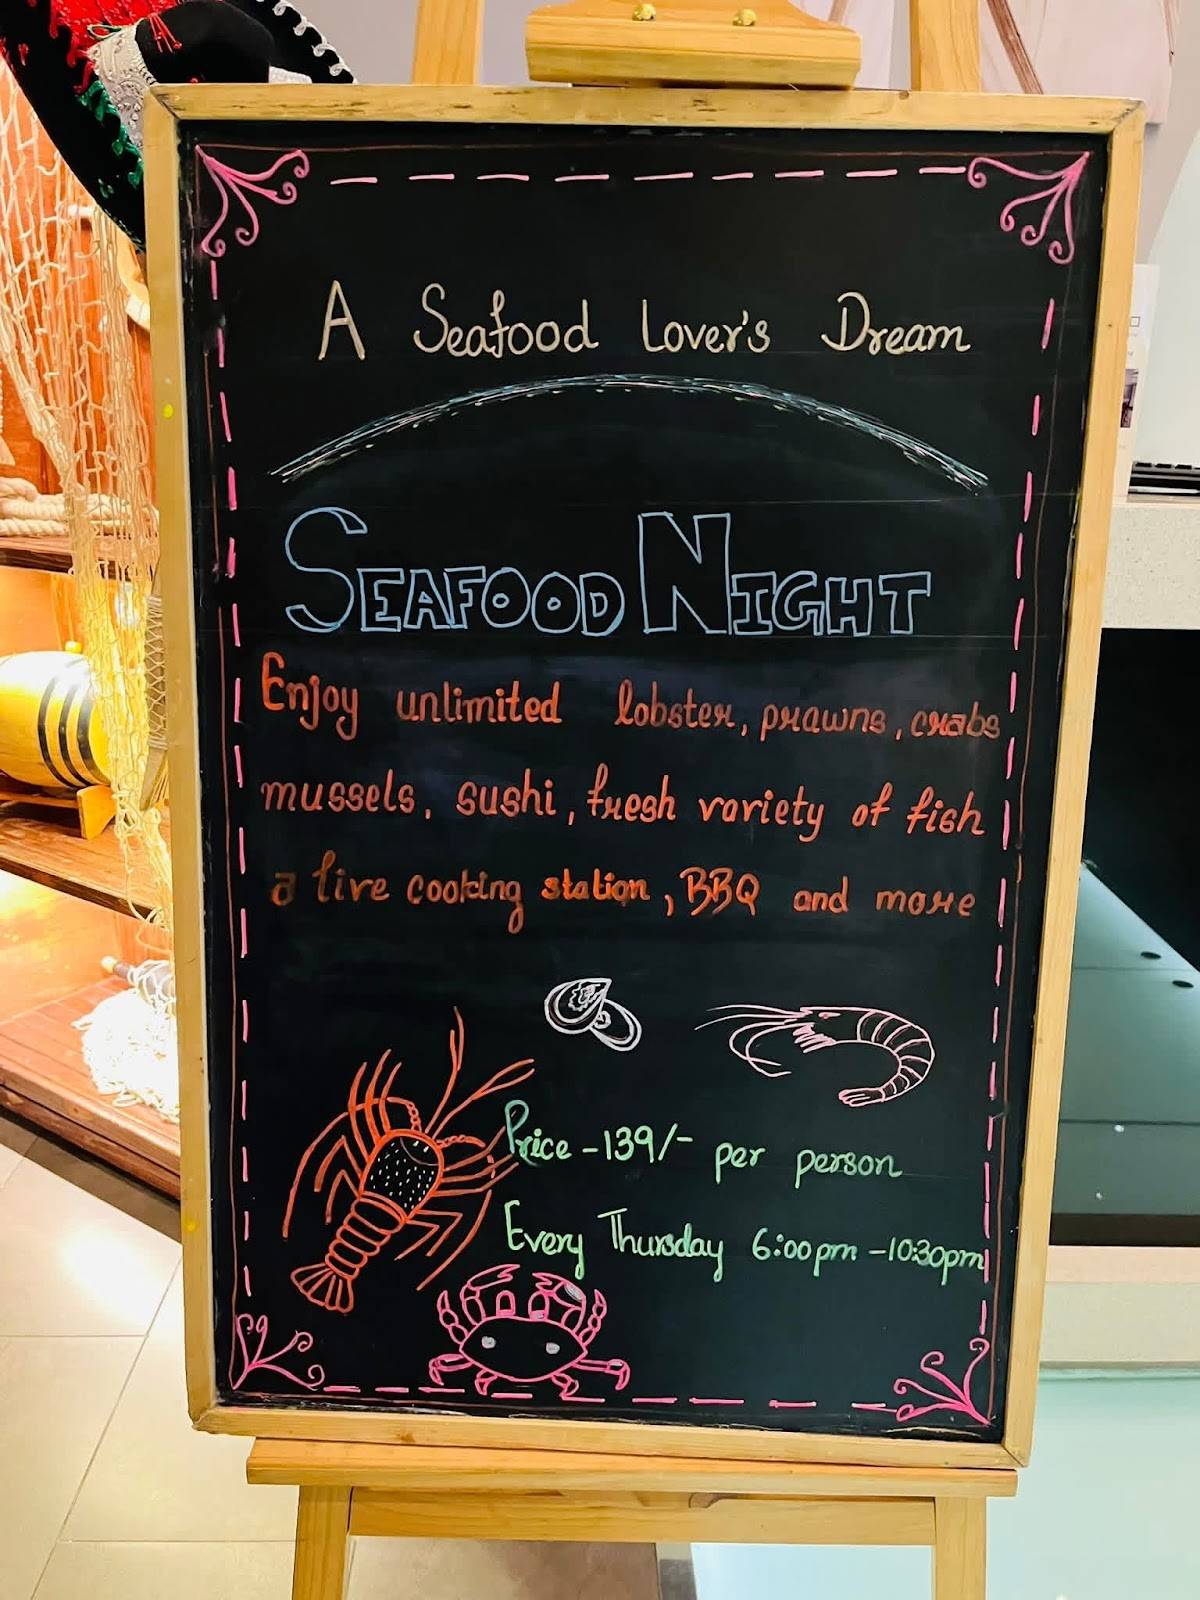 A Seafood Lover's Dream
SEAFOOD NIGHT
Enjoy unlimited lobster, prawns, crabs
mussels, sushi, fresh variety of fish
a live cooking station, BBQ and more
Price - 139/- per person
Every Thursday 6:00pm - 10:30pm